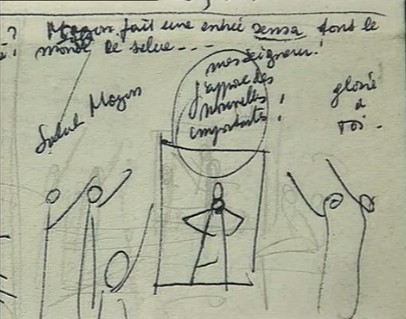 ? Mozgus fait une entrée sensa tout le
monde le salue - - -
messeigneurs !
j'apporte des
nouvelles
importantes !
gloire
à
toi -
Salut Mozgus